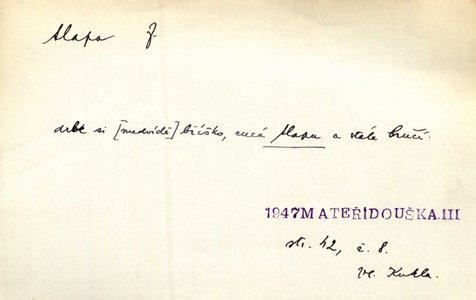 tlapa f.
drbe si [medvídě] bříško, cucá tlapu a stále bručí.
1947 MATEŘÍDOUŠKA.III
str. 42, č. 8.
Vl. Kukla.